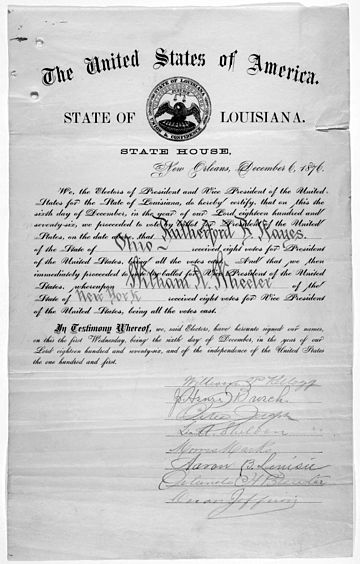 The United States of America.
STATE OF LOUISIANA.
STATE OF LOUISIANA
UNION & CONFIDENCE
STATE HOUSE,
New Orleans, December 6, 1876.
We, the Electors of President and Vice President of the United
States for the State of Louisiana, do hereby certify, that on this the
sixth day of December, in the year of our Lord eighteen hundred and
seventy-six, we proceeded to vote by ballot for President of the United
States, on the date above, that Rutherford B. Hayes
of the State of Ohio received eight votes for President
of the United States, being all the votes cast. And that we then
immediately proceeded to vote by ballot for Vice President of the United
States, whereupon William A. Wheeler of the
State of New York received eight votes for Vice President
of the United States, being all the votes cast.
In Testimony Whereof, we, said Electors, have hereunto signed our names,
on this the first Wednesday, being the sixth day of December, in the year of our
Lord eighteen hundred and seventy-six, and of the independence of the United States
the one hundred and first.
William P. Kellogg
J. Henri Burch
Peter Joseph
L. A. Sheldon
Morris Marks
Aaron B. Levisee
Orlando H. Brewster
Oscar Joffrion